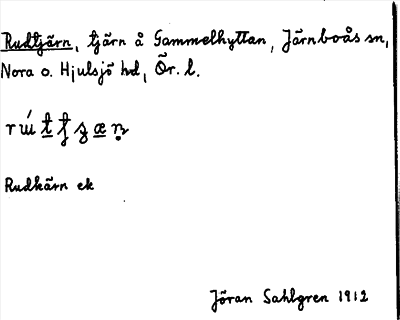 Rudtjärn, tjärn å Gammelhyttan, Järnboås sn,
Nora o. Hjulsjö hd, Ör. l.
Rudkärn ek
Jöran Sahlgren 1912